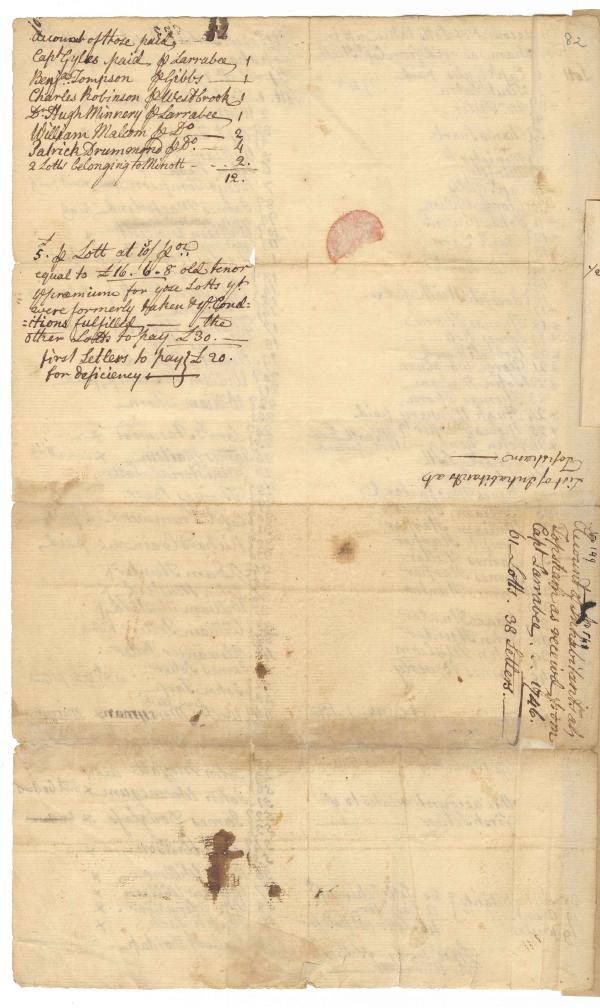 82
Account of those paid
Capt Gyles paid ⅌ Larrabee 1
Benjas Tompson ⅌ Gibbs — 1
Charles Robinson ⅌ Westbrook 1
Dr Hugh Minnery ⅌ Larrabee 1
William Malcom ⅌ Do — 2
Patrick Drummond ⅌ Do. — 4
2 Lotts belonging to Minott - - 2.
12.
5. ⅌ Lott at 10/ ⅌ oz
equal to £16.. 6.. 8 old tenor
ye præmium for yose Lotts yt
were formerly taken & ye Cond=
=itions fulfilled — the
other Lotts to pay £30. —
first Setlers to pay £20.
for deficiency —
List of Inhabitants at
Topsham —
Account of Inhabitants at
Topsham as receivd from
Capt Larrabee . . . 1746.
61 Lotts. 38 Setlers.